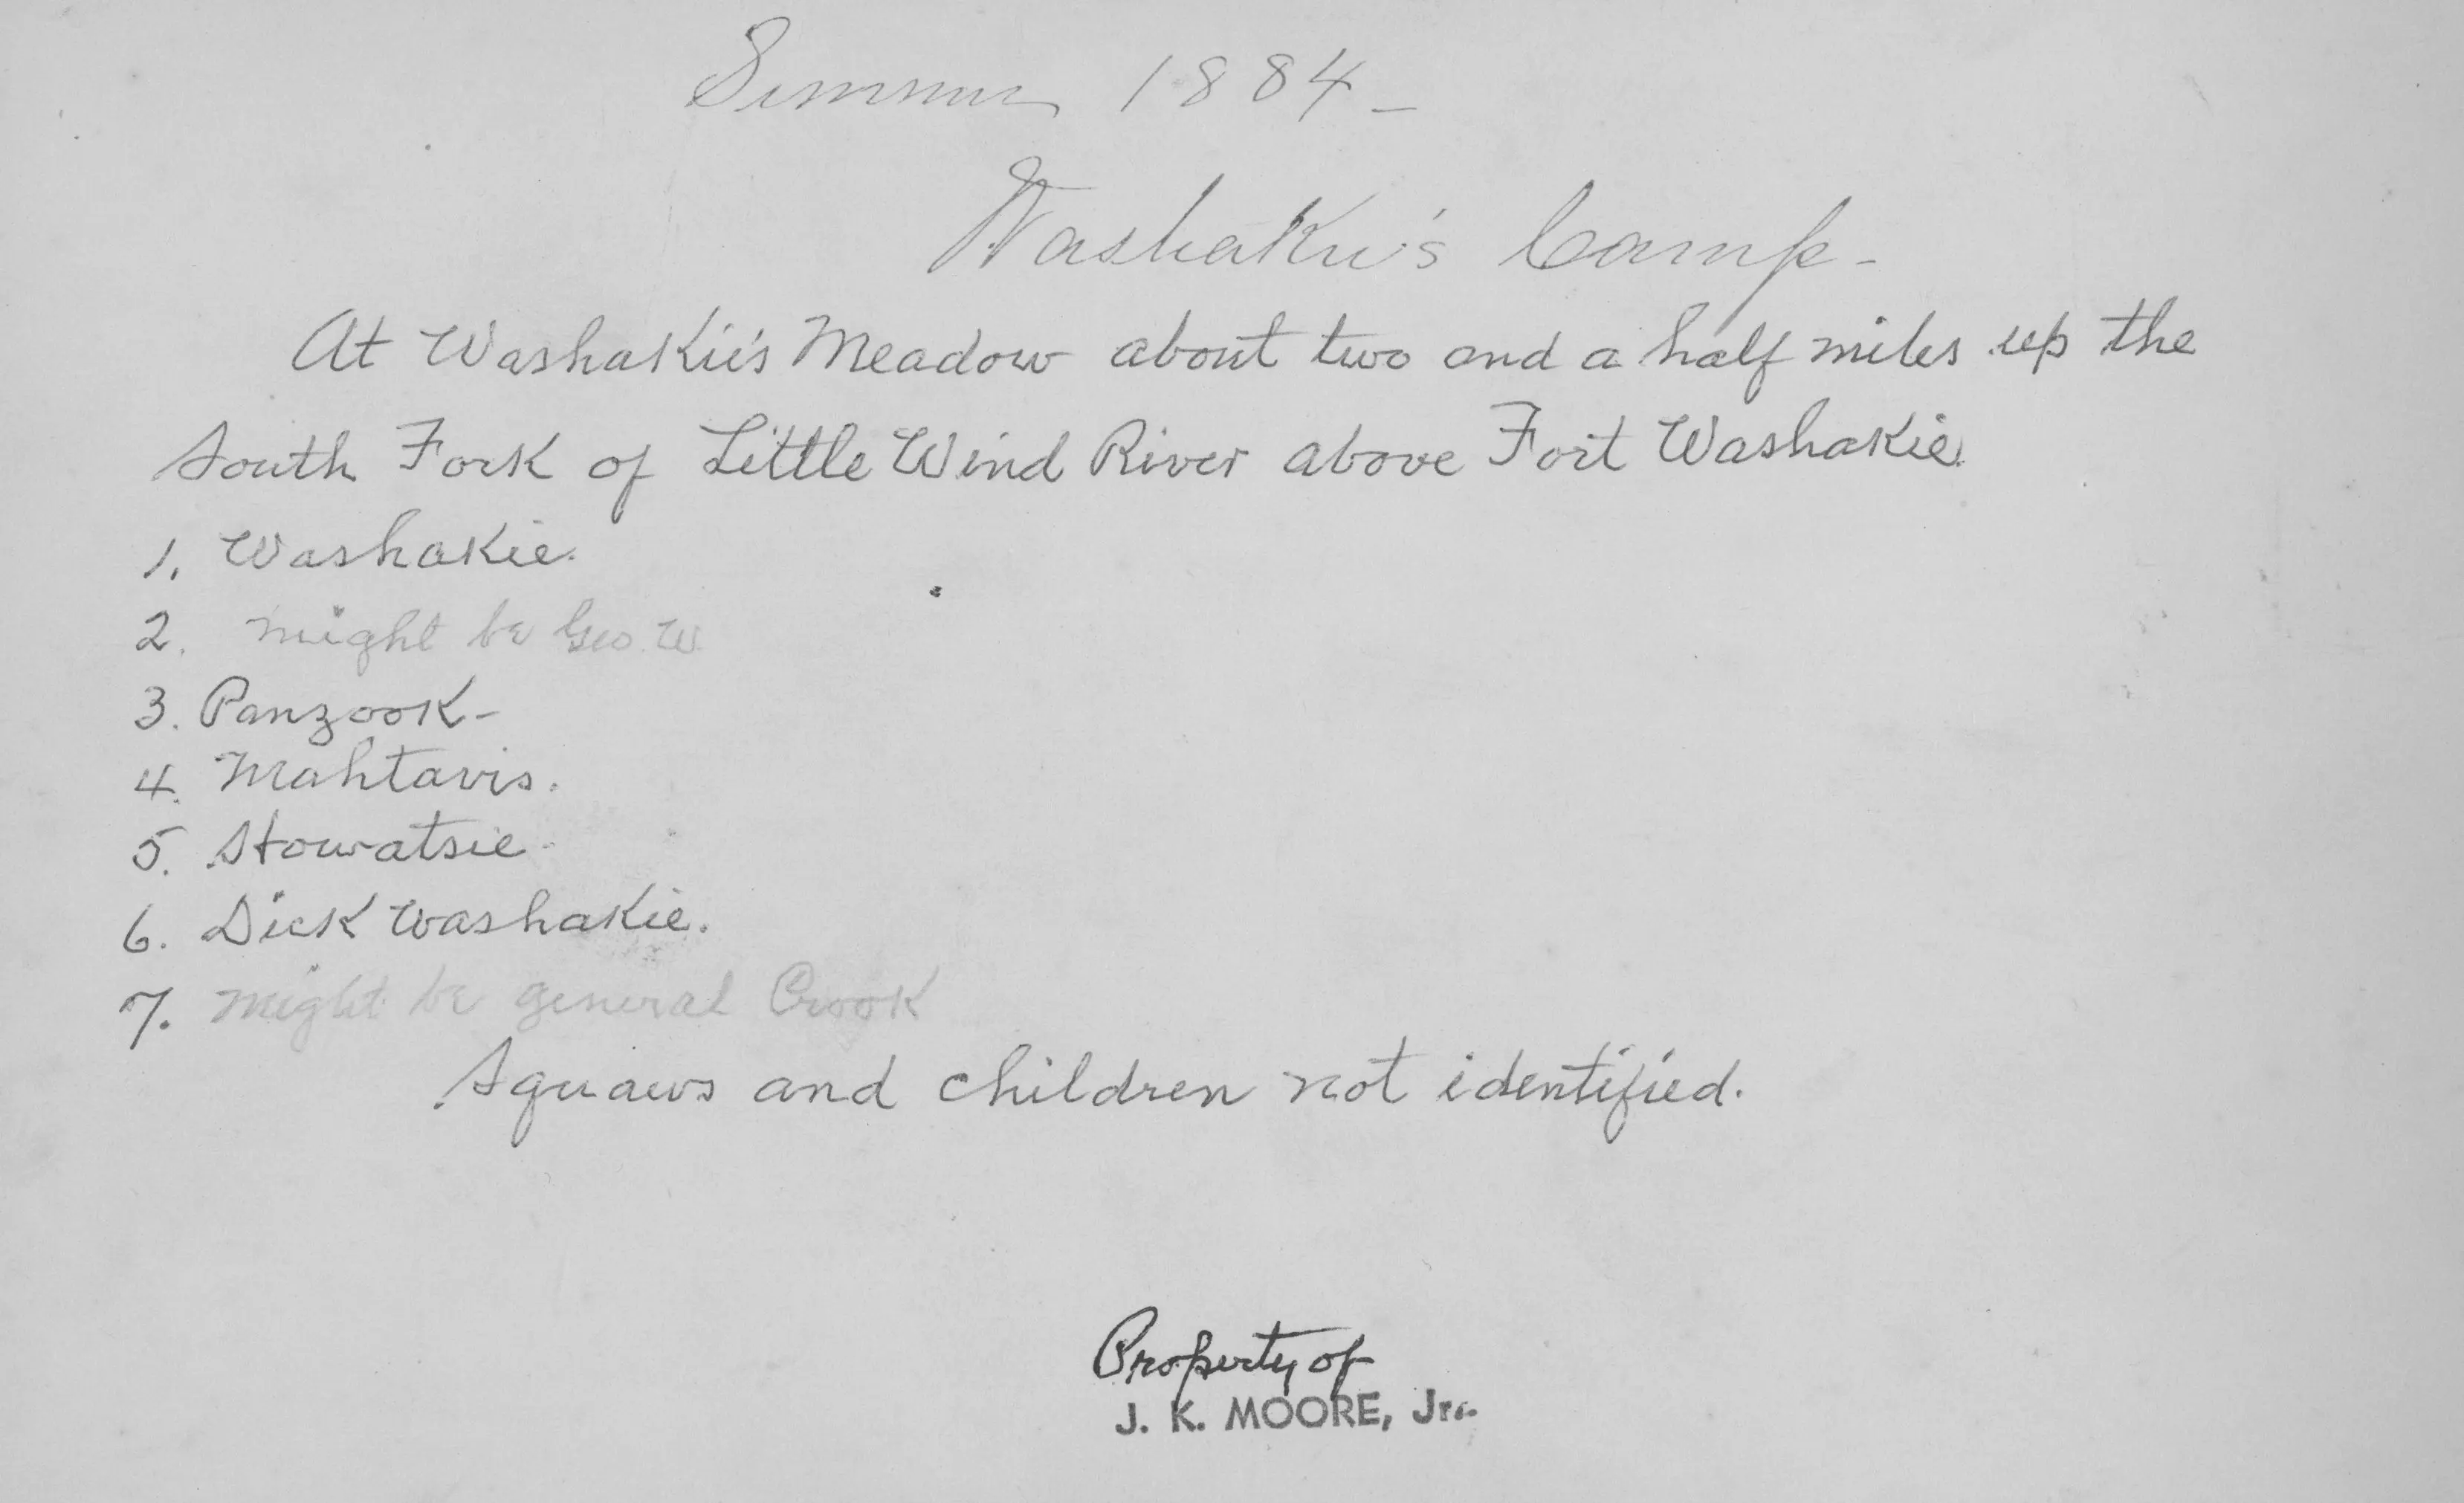 Summer 1884 -
Washakie's Camp -
At Washakie's Meadow about two and a half miles up the
South Fork of Little Wind River above Fort Washakie.
1. Washakie.
2. might be Geo. W.
3. Panzook -
4. Mahtavis.
5. Stowatsie -
6. Dick Washakie.
7. might be general Crook
Squaws and children not identified.
Property of
J. K. MOORE, Jr.